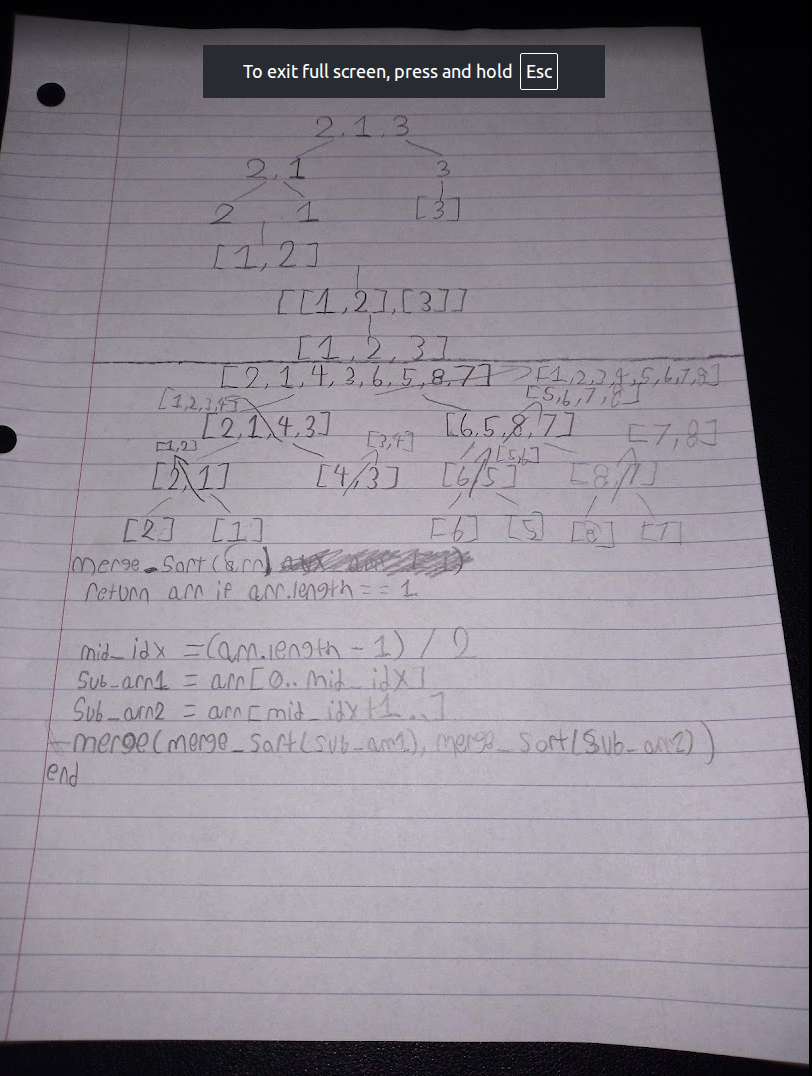 To exit full screen, press and hold Esc
2.1.3
2.1 3
2 , 1 [3]
[1,2]
[[1,2],[3]]
[1,2,3]
[2,1,4,3,6,5,8,7] [1,2,3,4,5,6,7,8]
[1,2,3,4] [5,6,7,8]
[2,1,4,3] [6,5,8,7] [7,8]
[1,2] [3,4] [5,6]
[2,1] [4,3] [6,5] [8,7]
[2] [1] [6] [5] [8] [7]
merge_sort(arr)
return arr if arr.length == 1
mid_idx = (arr.length - 1) / 2
sub_arr1 = arr[0..mid_idx]
sub_arr2 = arr[mid_idx+1..]
merge(merge_sort(sub_arr1), merge_sort(sub_arr2))
end